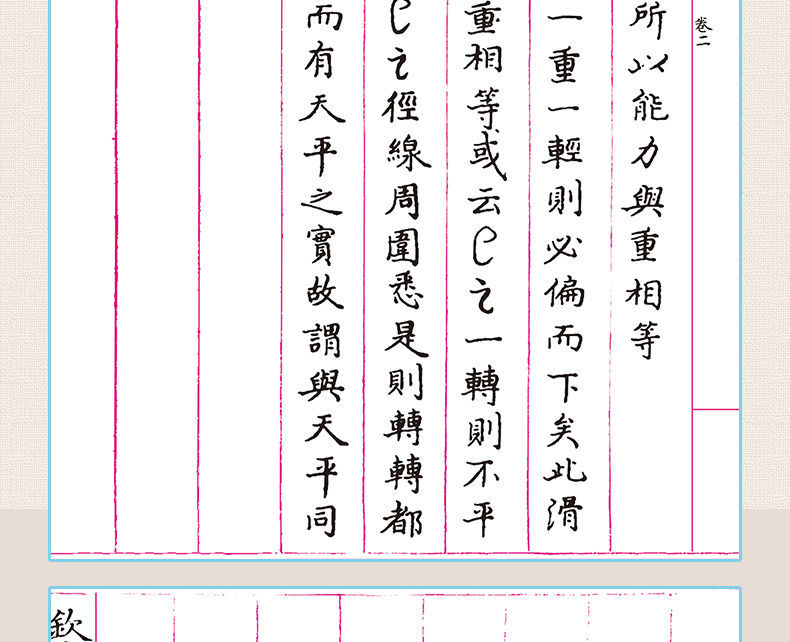 卷二
所以能力與重相等
一重一輕則必偏而下矣此滑
重相等或云C之一轉則不平
C之徑線周圍悉是則轉轉都
而有天平之實故謂與天平同
欽